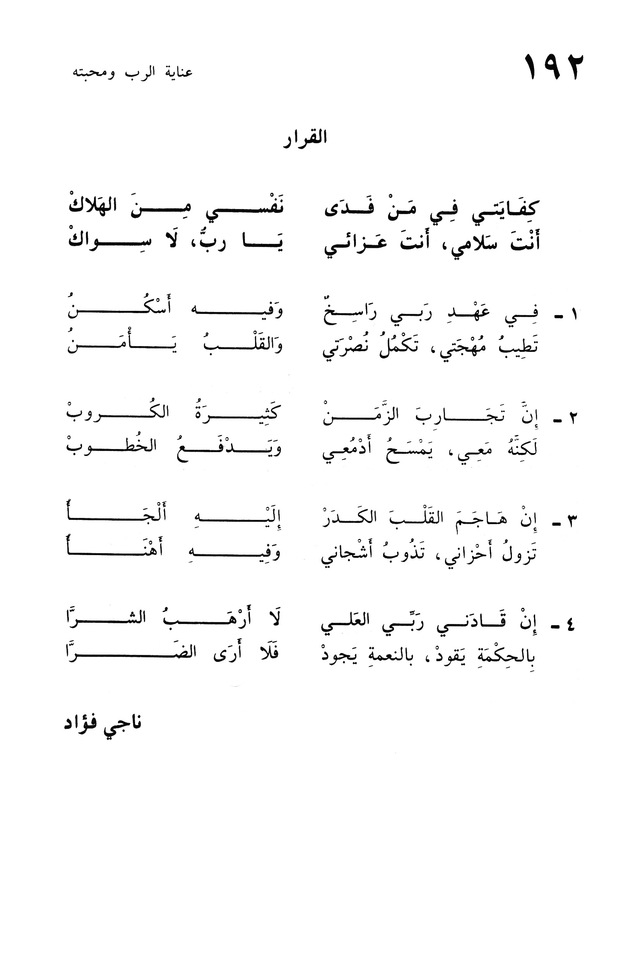 ١٩٢ عناية الرب ومحبته
القرار
كِفَايَتي فِي مَنْ فَدَى نَفْسي مِنَ الهَلاكْ
أَنْتَ سَلامي، أَنتَ عَزائي يَا ربُّ، لَا سِواكْ
١ - فِي عَهْدِ رَبي رَاسِخٌ وَفيه أَسْكُنُ
تَطِيبُ مُهْجَتي، تَكْمُلُ نُصْرَتي وَالقَلْبُ يَأْمَنُ
٢ - إِنَّ تَجَارِبَ الزَّمَنْ كَثِيرَةُ الكُروبْ
لَكِنَّهُ مَعِي، يَمْسَحُ أَدْمُعِي وَيَدْفَعُ الخُطوبْ
٣ - إِنْ هَاجَمَ القَلْبَ الكَدَرْ إِلَيْهِ أَلْجَأُ
تَزولُ أَحْزاني، تَذُوبُ أَشْجاني وَفِيهِ أَهْنَأُ
٤ - إِنْ قَادَني رَبِّي العَلي لَا أَرْهَبُ الشرَّا
بِالحِكْمَةِ يَقودْ، بالنعمةِ يَجودْ فَلَا أَرَى الضَرَّا
ناجي فؤاد